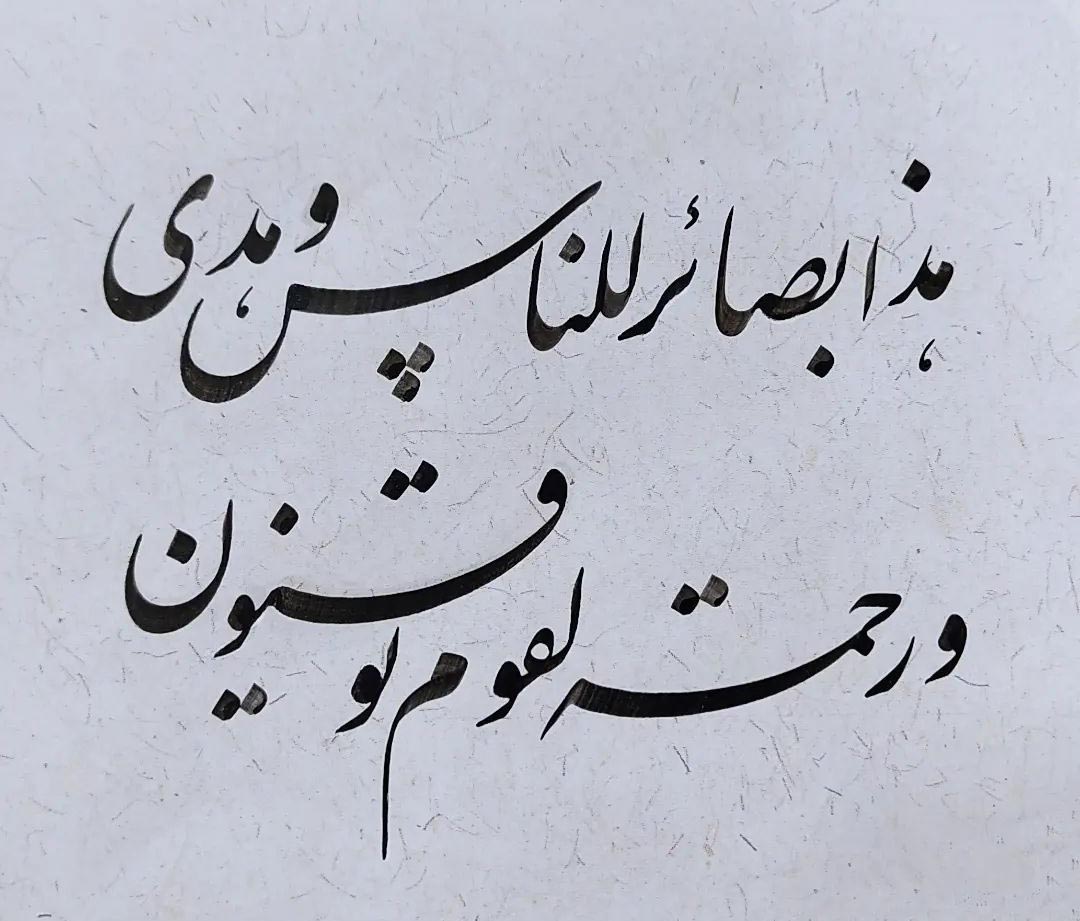 هذا بصائر للناس و هدی
و رحمة لقوم یوقنون